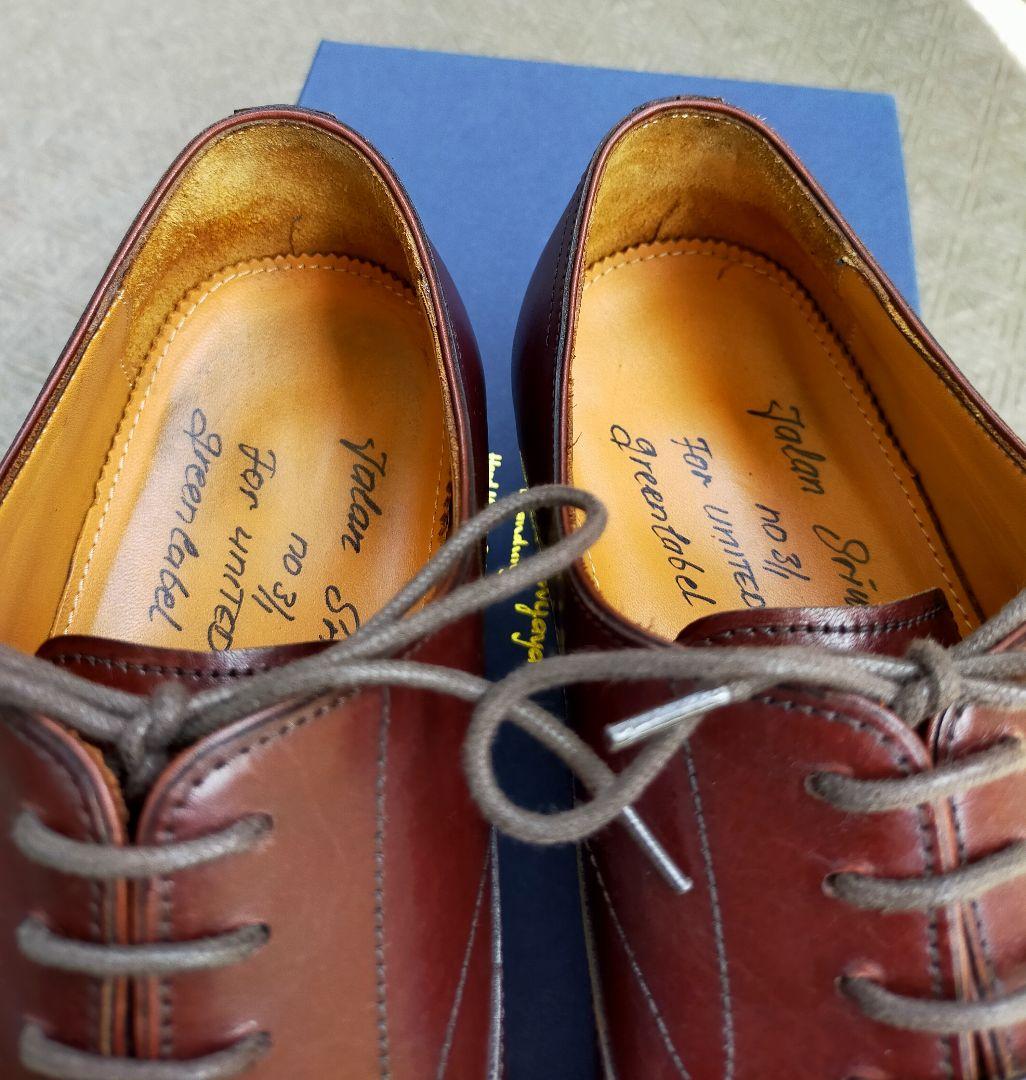 Jalan
no 3/1
For UNITED
greenlabel
Jalan Sriw
no 3/1
For UNITED
greenlabel